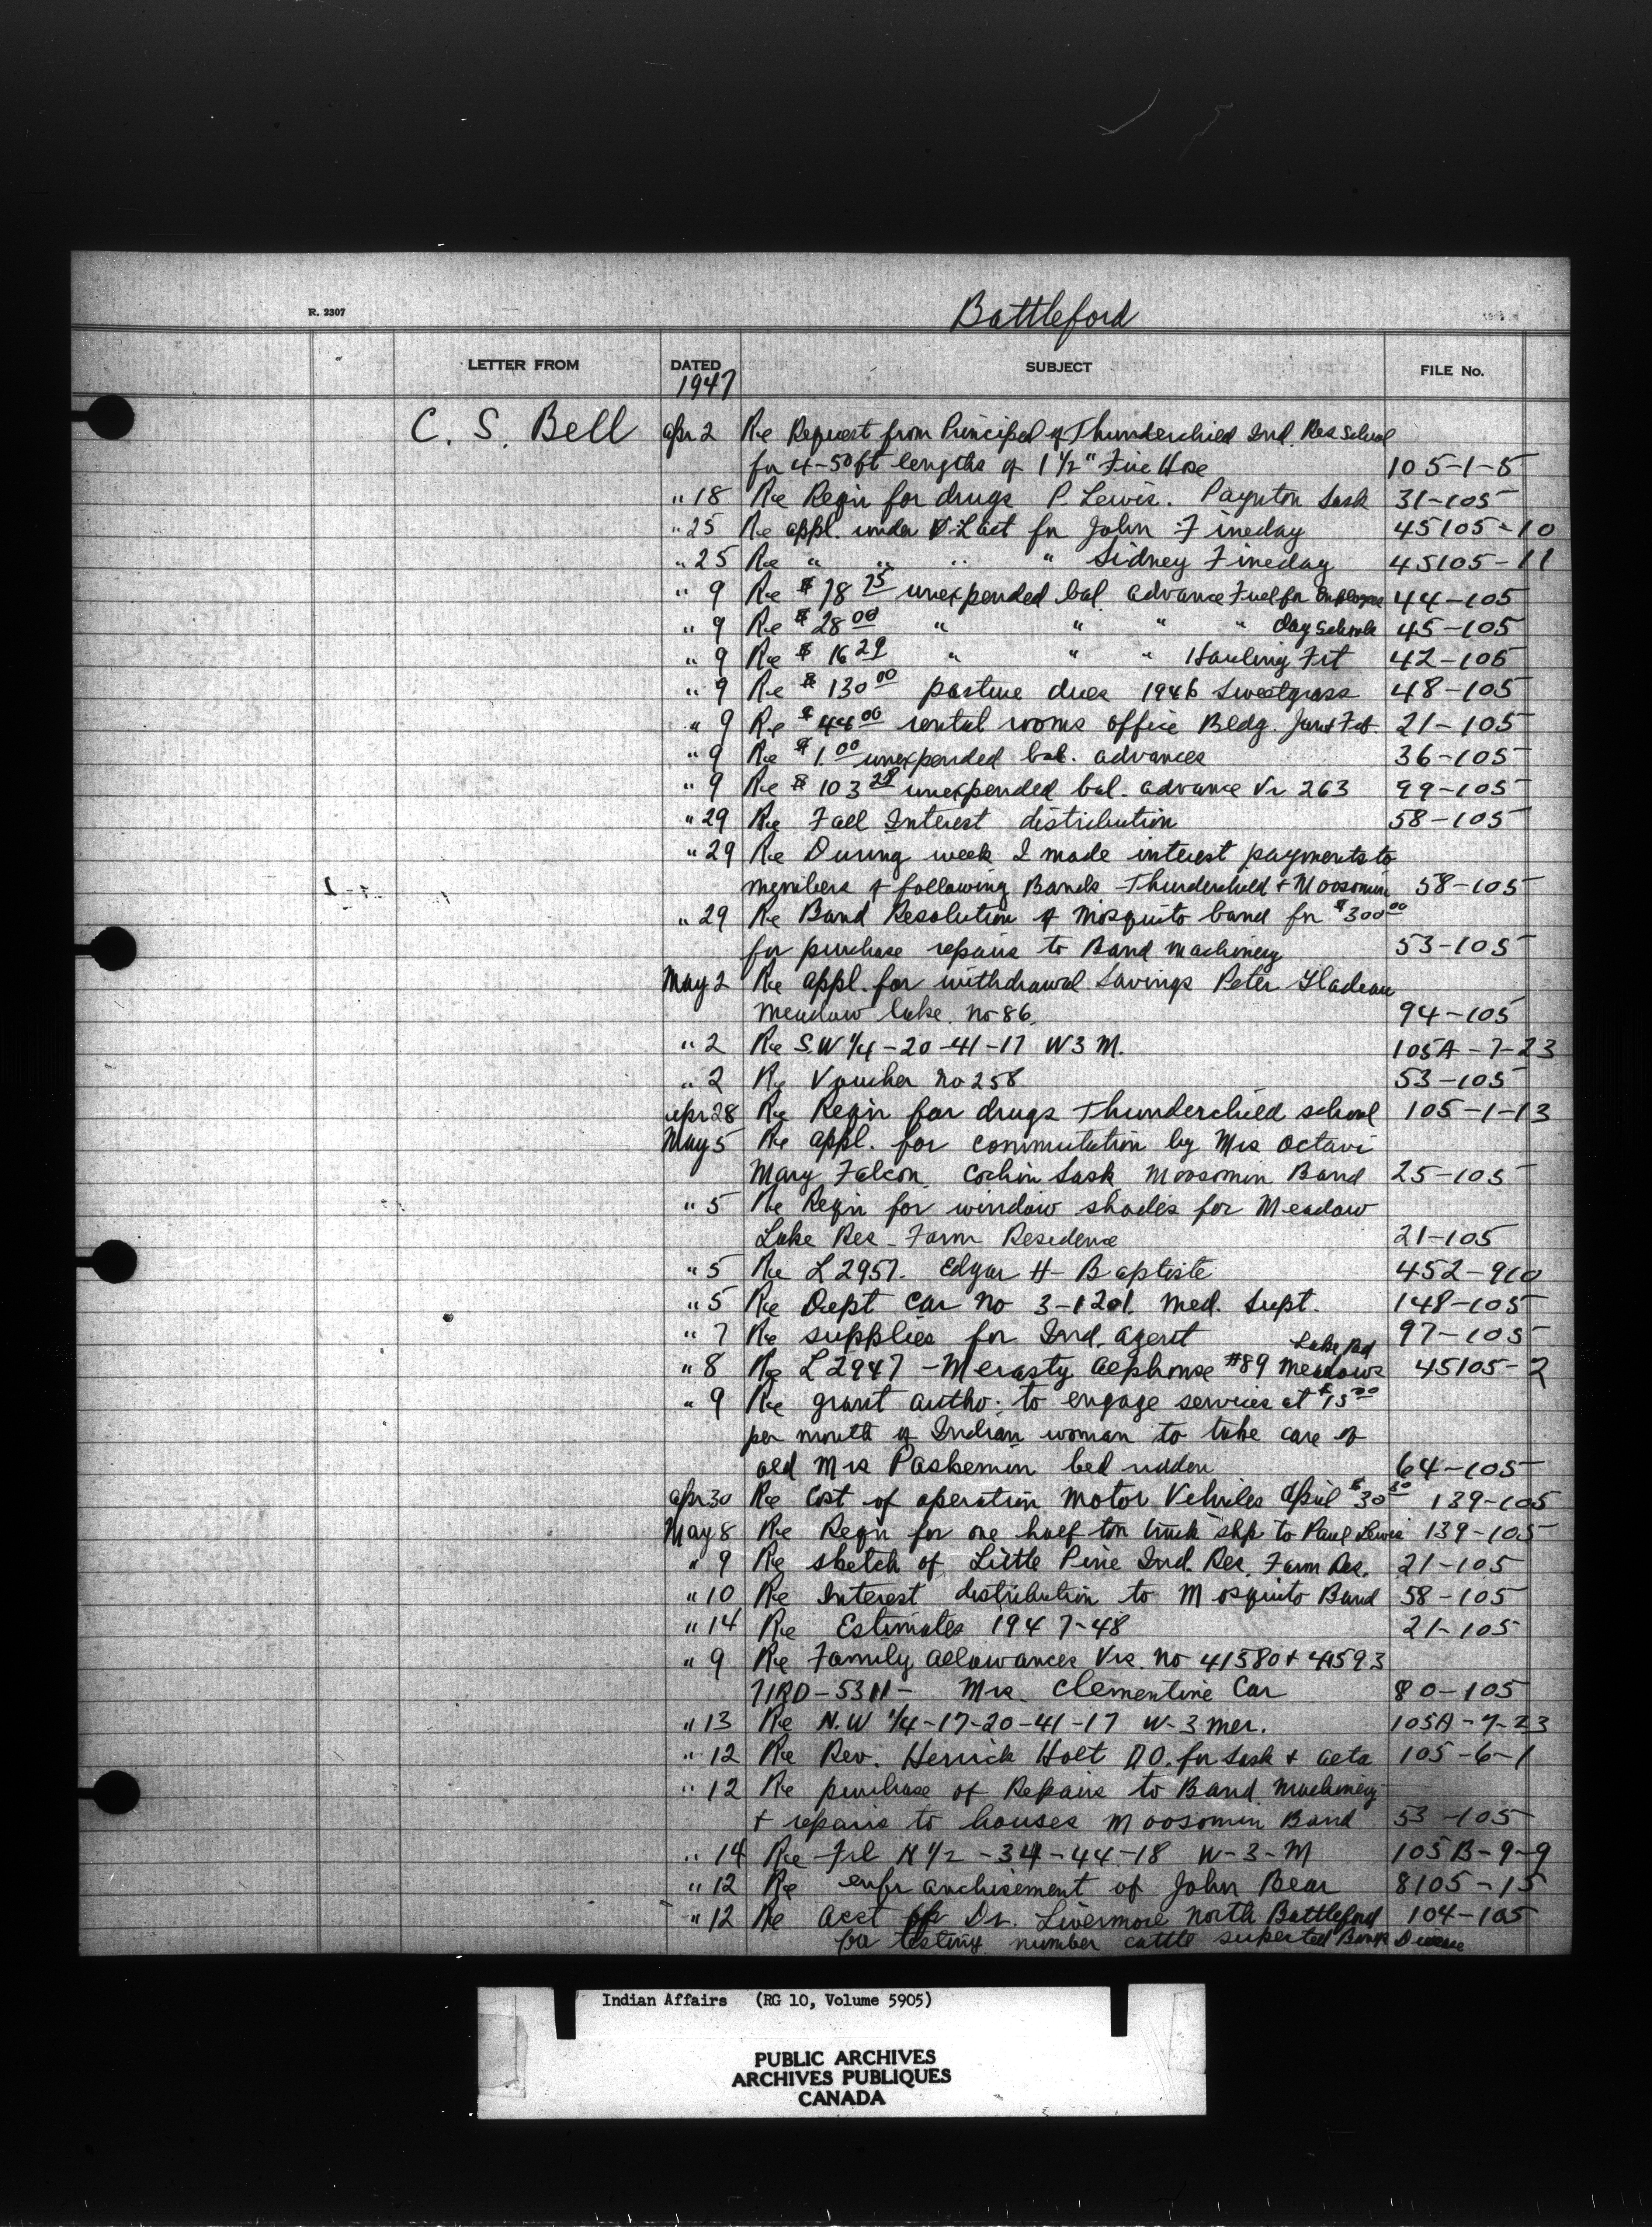 Battleford
R. 2307
LETTER FROM DATED SUBJECT FILE No.
1947
C. S. Bell apr 2 Re Request from Principal of Thunderchild Ind Res School
for 4-50ft lengths of 1 1/2" Fire Hose 105-1-5
" 18 Re Reqn for drugs P. Lewis. Paynton Sask 31-105
" 25 Re appl. under V.L act for John Fineday 45105-10
" 25 Re " " " " Sidney Fineday 45105-11
" 9 Re $78 75 unexpended bal. advance Fuel for Employee 44-105
" 9 Re $28 00 " " " " day Schools 45-105
" 9 Re $16 29 " " " Hauling Frt 42-105
" 9 Re $130 00 pasture dues 1946 Sweetgrass 48-105
" 9 Re $44 00 rental rooms office Bldg. Jan & Feb. 21-105
" 9 Re $1.00 unexpended bal. advances 36-105
" 9 Re $103 28 unexpended bal. advance Vr 263 99-105
" 29 Re Fall Interest distribution 58-105
" 29 Re During week I made interest payments to
members of following Bands - Thunderchild & Moosomin 58-105
" 29 Re Band Resolution of Mosquito band for $300 00
for purchase repairs to Band machinery 53-105
May 2 Re appl. for withdrawal Savings Peter Gladeau
Meadow lake. no 86. 94-105
" 2 Re S.W 1/4-20-41-17 W3 M. 105A-7-23
" 2 Re Voucher no 258 53-105
apr 28 Re Reqn for drugs Thunderchild school 105-1-13
May 5 Re appl. for commutation by Mrs Octavi
Mary Falcon. Cochin Sask. Moosomin Band 25-105
" 5 Re Reqn for window shades for Meadow
Lake Res - Farm Residence 21-105
" 5 Re L 2957. Edgar H- Baptiste 452-910
" 5 Re Dept Car no 3-1201. Med. Supt. 148-105
" 7 Re supplies for Ind. agent 97-105
Lake Bd
" 8 Re L 2947 - Merasty Alphonse #89 Meadow 45105-2
" 9 Re grant autho. to engage services at $15 00
per month of Indian woman to take care of
old Mrs Paskemin bed ridden 64-105
apr 30 Re Cost of operation Motor Vehicles April $30 30 139-105
May 8 Re Reqn for one half ton truck shp to Paul Lewis 139-105
" 9 Re sketch of Little Pine Ind. Res. Farm Res. 21-105
" 10 Re Interest distribution to Mosquito Band 58-105
" 14 Re Estimates 1947-48 21-105
" 9 Re Family Allowances Vrs. no 41580 & 41593
Mrs. Clementine Car 80-105
" 13 Re N.W 1/4-17-20-41-17 W-3 mer. 105A-7-23
" 12 Re Rev. Herrick Holt D.O. for Sask & alta 105-6-1
" 12 Re purchase of Repairs to Band Machinery
& repairs to houses Moosomin Band 53-105
" 14 Re Frl N 1/2 -34-44-18 W-3-M 105B-9-9
" 12 Re enfranchisement of John Bear 8105-15
" 12 Re acct Dr. Livermore North Battleford 104-105
for testing number cattle suspected Bangs Disease
Indian Affairs (RG 10, Volume 5905)
PUBLIC ARCHIVES
ARCHIVES PUBLIQUES
CANADA